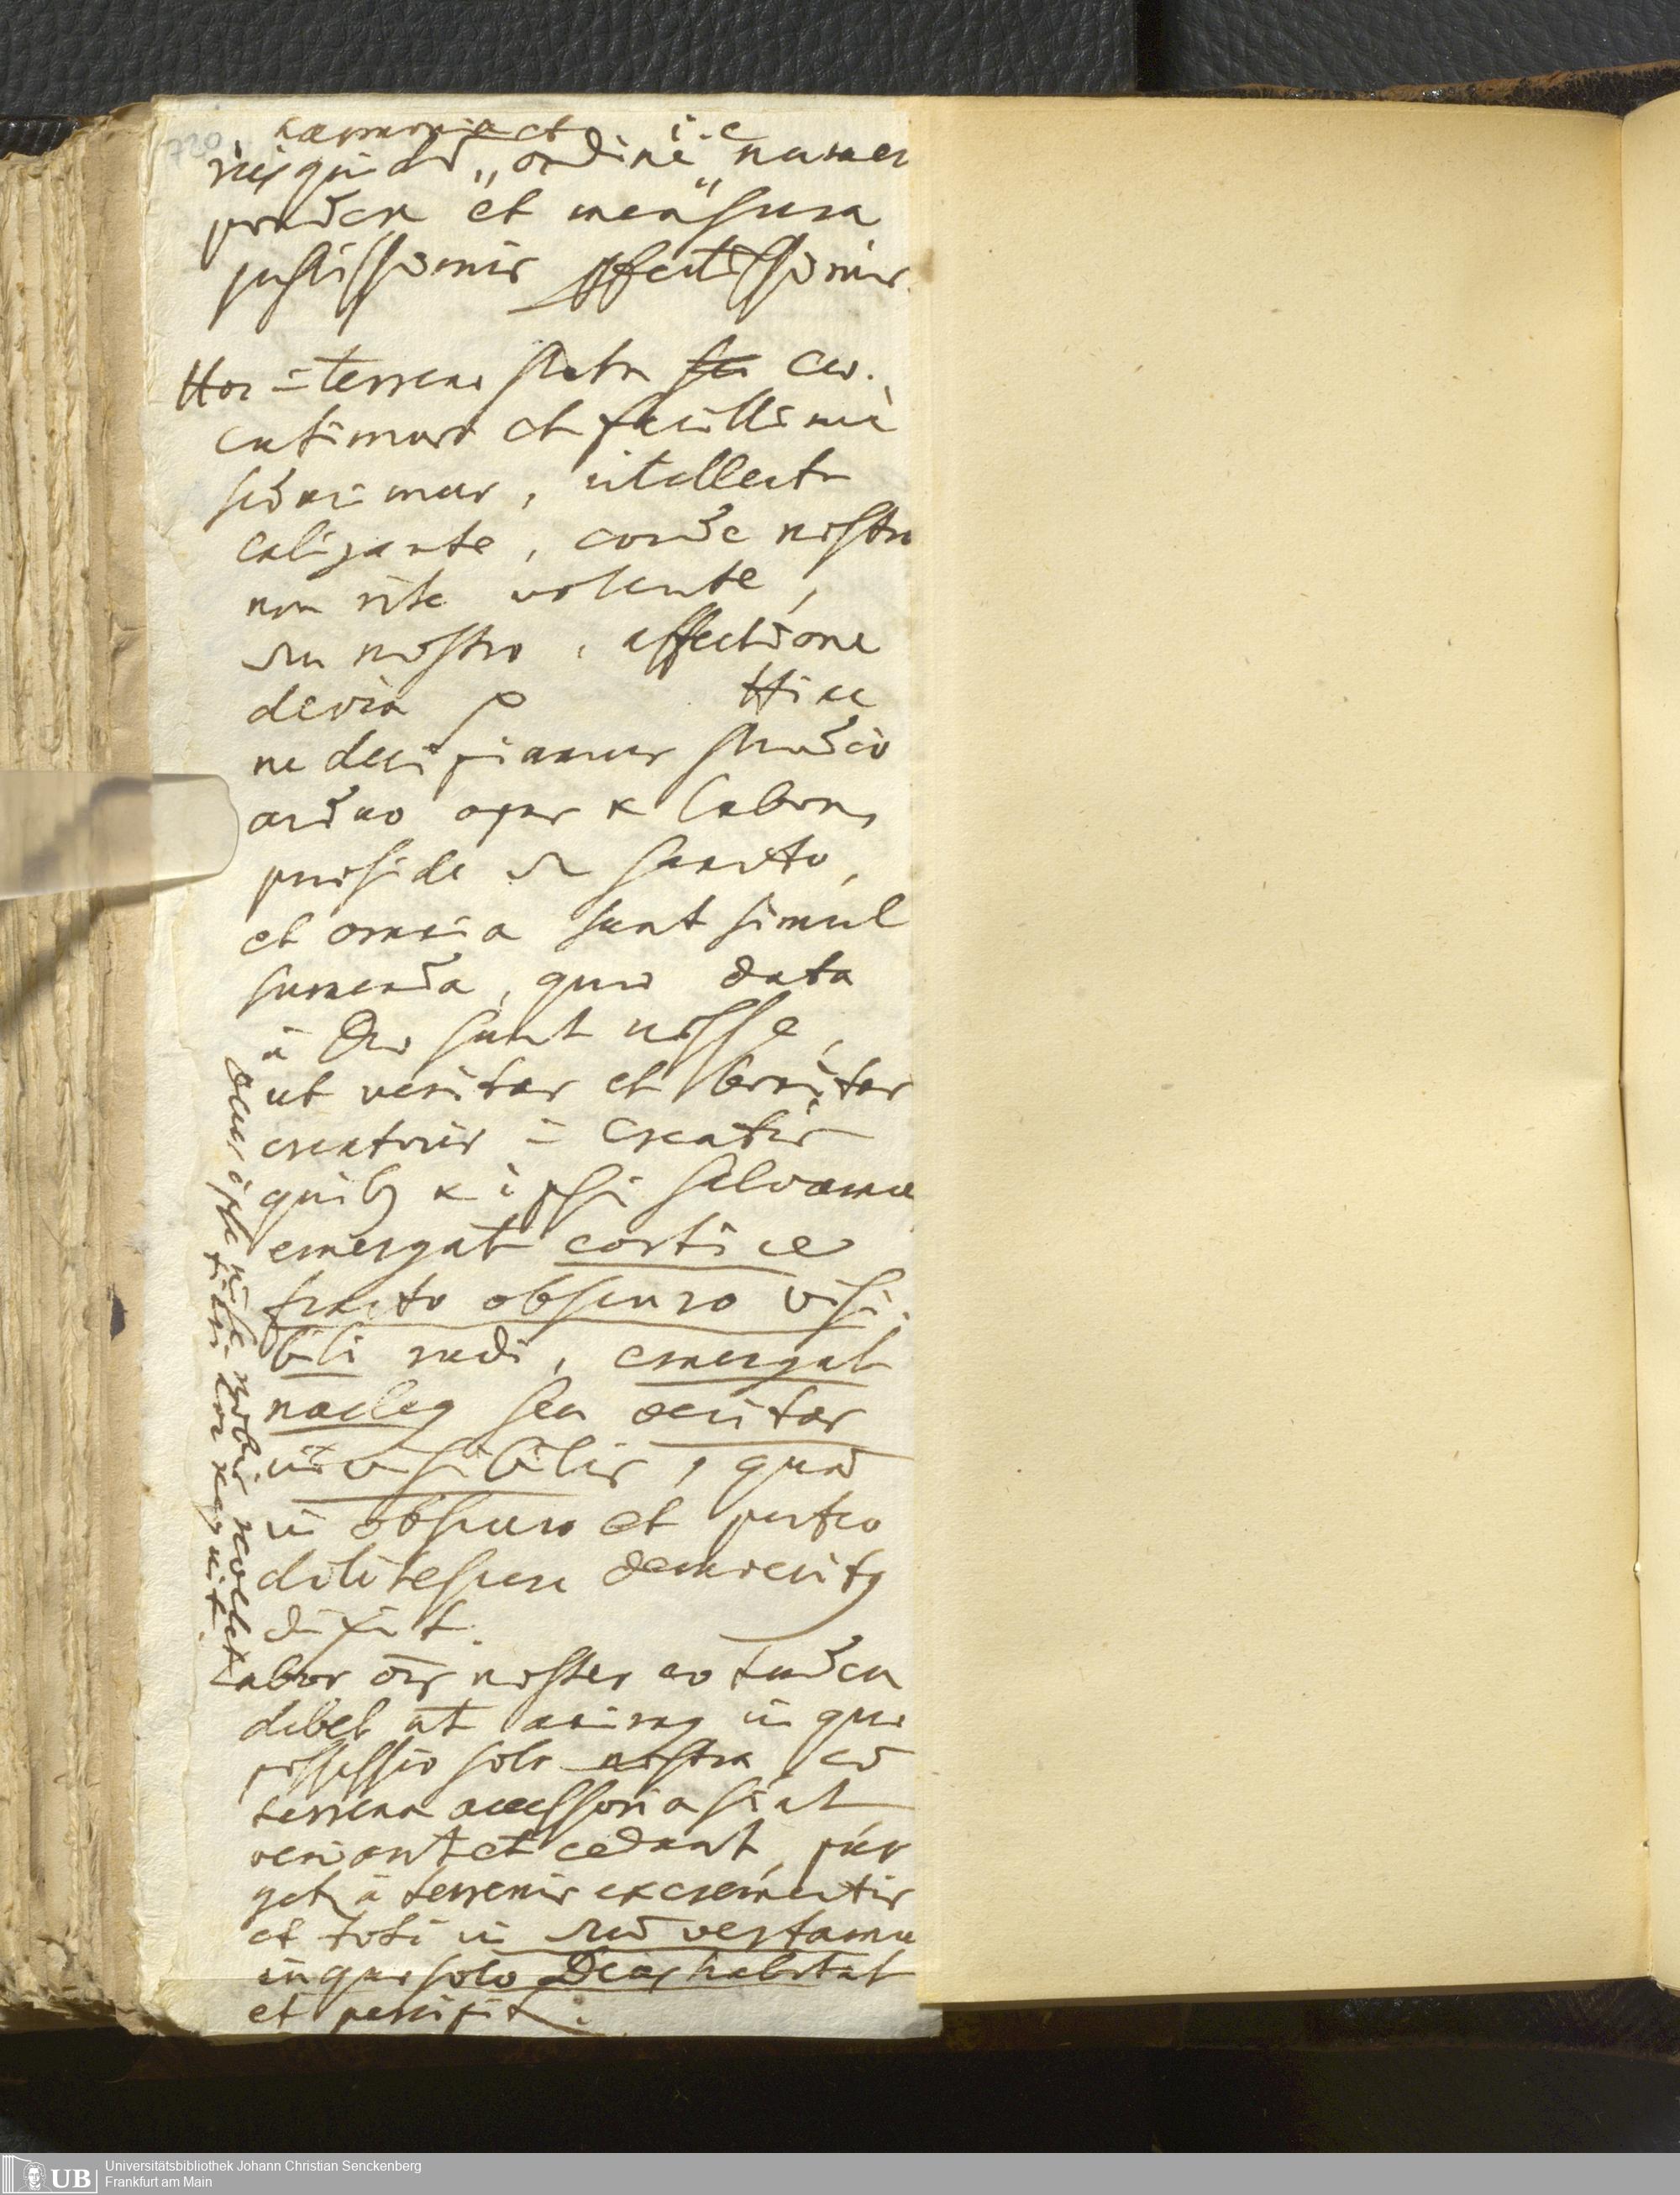 720
harmonia et i.e.
ordine numer
pondere et mensura
justissimis pfectissimis.
Hoc = terreno statu cer.
cutimur et facillime
seducimur, intellectu
caligante, corde nostro
non rite volente,
nostro, affectione
devia Hinc
ne decipiamur studio
arduo opus & labore,
praeside sancto,
et omnia sunt simul
sumenda, quae data
à Deo sunt nosse,
ut veritas et bonitas
creatoris = creatis
quib9 & ipsi salvamur
emergat cortice
fracto obscuro visi.
bili rudi, emergat
nucleg seu veritas
invisibilis, quam
in obscuro et puteo
delitescere democritg
dixit.
Labor oīs noster eo tendere
debet ut animg in quo
possessio sola nostra cū
terrena accessoria sint
veniant et cedant, pur
get à terrenis excrementis
et toti in vertamur
in quo solo Deus habitat
et perficit.
Deus ipse nisi nobis nollet
sibi cor
Universitätsbibliothek Johann Christian Senckenberg
Frankfurt am Main
UB